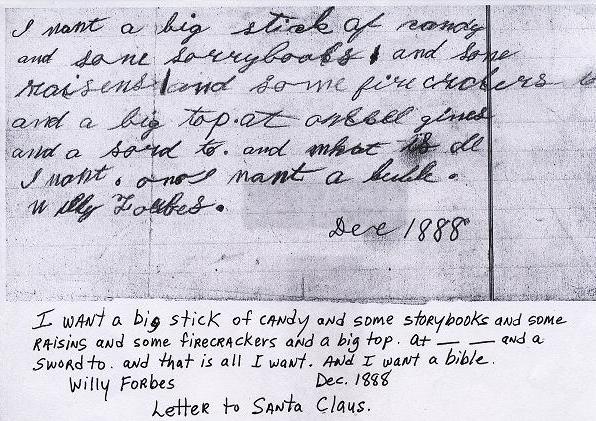 I want a big stick of candy
and some sorrybooks and some
raisens and some fire crackers
and a big top. at
and a sord to. and what is all
I want. and I want a bible.
Willy Forbes.
Dec 1888
I WANT a big stick of CANDY and some STORYbooks and some
RAISINS and some FIRECRACKERS and a big top. at — — and a
SWORD to. and that is all I want. And I want a bible.
Willy Forbes Dec. 1888
Letter to Santa Claus.